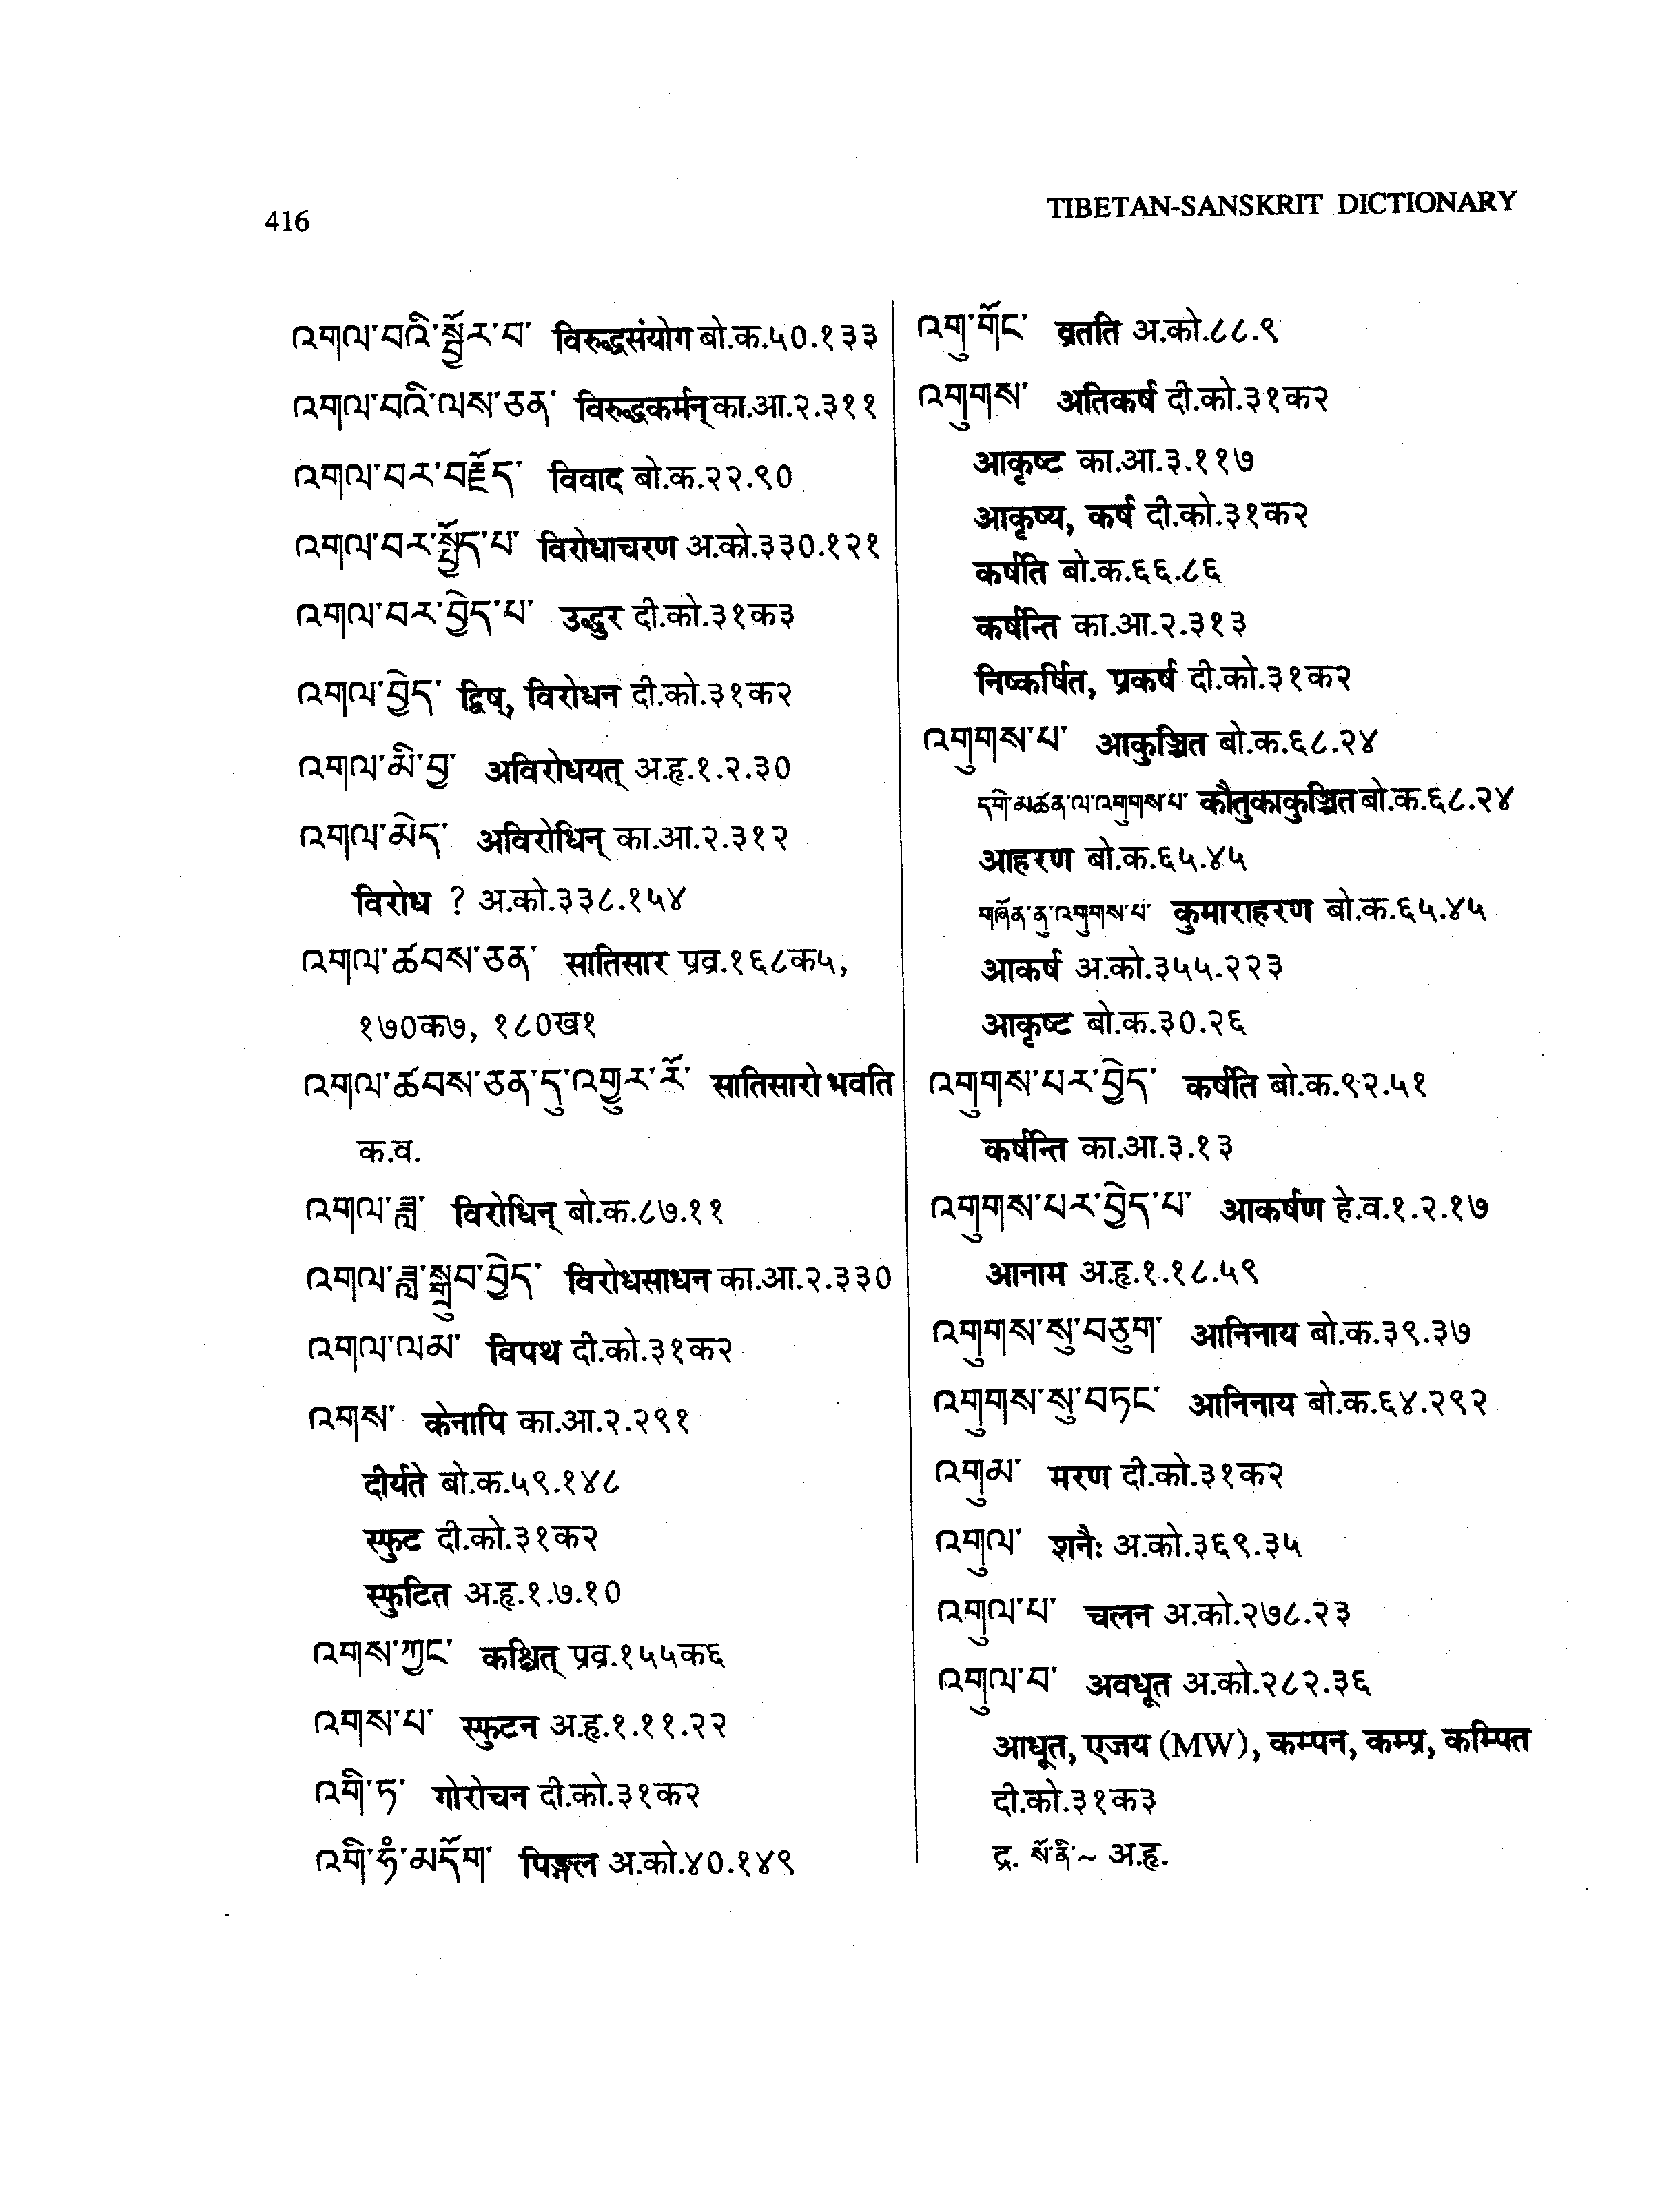 416
TIBETAN-SANSKRIT DICTIONARY
འགལ་བའི་སྦྱོར་བ་ विरुद्धसंयोग बो.क.५०.१३३
འགལ་བའི་ལས་ཅན་ विरुद्धकर्मन् का.आ.२.३११
འགལ་བར་བརྗོད་ विवाद बो.क.२२.९०
འགལ་བར་སྤྱོད་པ་ विरोधाचरण अ.को.३३०.१२१
འགལ་བར་བྱེད་པ་ उद्धुर दी.को.३१क३
འགལ་བྱེད་ द्विष्, विरोधन दी.को.३१क२
འགལ་མི་བྱ་ अविरोधयत् अ.हृ.१.२.३०
འགལ་མེད་ अविरोधिन् का.आ.२.३१२
विरोध ? अ.को.३३८.१५४
འགལ་ཚབས་ཅན་ सातिसार प्रव्र.१६८क५,
१७०क७, १८०ख१
འགལ་ཚབས་ཅན་དུ་འགྱུར་རོ་ सातिसारो भवति
क.व.
འགལ་ཟླ་ विरोधिन् बो.क.८७.११
འགལ་ཟླ་སྒྲུབ་བྱེད་ विरोधसाधन का.आ.२.३३०
འགལ་ལམ་ विपथ दी.को.३१क२
འགས་ केनापि का.आ.२.२९१
दीर्यते बो.क.५९.१४८
स्फुट दी.को.३१क२
स्फुटित अ.हृ.१.७.१०
འགས་ཀྱང་ कश्चित् प्रव्र.१५५क६
འགས་པ་ स्फुटन अ.हृ.१.११.२२
འགི་ཏ་ गोरोचन दी.को.३१क२
འགི་ཧཾ་མདོག་ पिङ्गल अ.को.४०.१४९
འགུ་གོང་ व्रतति अ.को.८८.९
འགུགས་ अतिकर्ष दी.को.३१क२
आकृष्ट का.आ.३.११७
आकृष्य, कर्ष दी.को.३१क२
कर्षति बो.क.६६.८६
कर्षन्ति का.आ.२.३१३
निष्कर्षित, प्रकर्ष दी.को.३१क२
འགུགས་པ་ आकुञ्चित बो.क.६८.२४
དགེ་མཚན་ལ་འགུགས་པ་ कौतुकाकुञ्चित बो.क.६८.२४
आहरण बो.क.६५.४५
གཞོན་ནུ་འགུགས་པ་ कुमाराहरण बो.क.६५.४५
आकर्ष अ.को.३५५.२२३
आकृष्ट बो.क.३०.२६
འགུགས་པར་བྱེད་ कर्षति बो.क.९२.५१
कर्षन्ति का.आ.३.१३
འགུགས་པར་བྱེད་པ་ आकर्षण हे.व.१.२.१७
आनाम अ.हृ.१.१८.५९
འགུགས་སུ་བཅུག་ आनिनाय बो.क.३९.३७
འགུགས་སུ་བཏང་ आनिनाय बो.क.६४.२९२
འགུམ་ मरण दी.को.३१क२
འགུལ་ शनैः अ.को.३६९.३५
འགུལ་པ་ चलन अ.को.२७८.२३
འགུལ་བ་ अवधूत अ.को.२८२.३६
आधूत, एजय (MW), कम्पन, कम्प्र, कम्पित
दी.को.३१क३
द्र. སོ་ནི་~ अ.हृ.